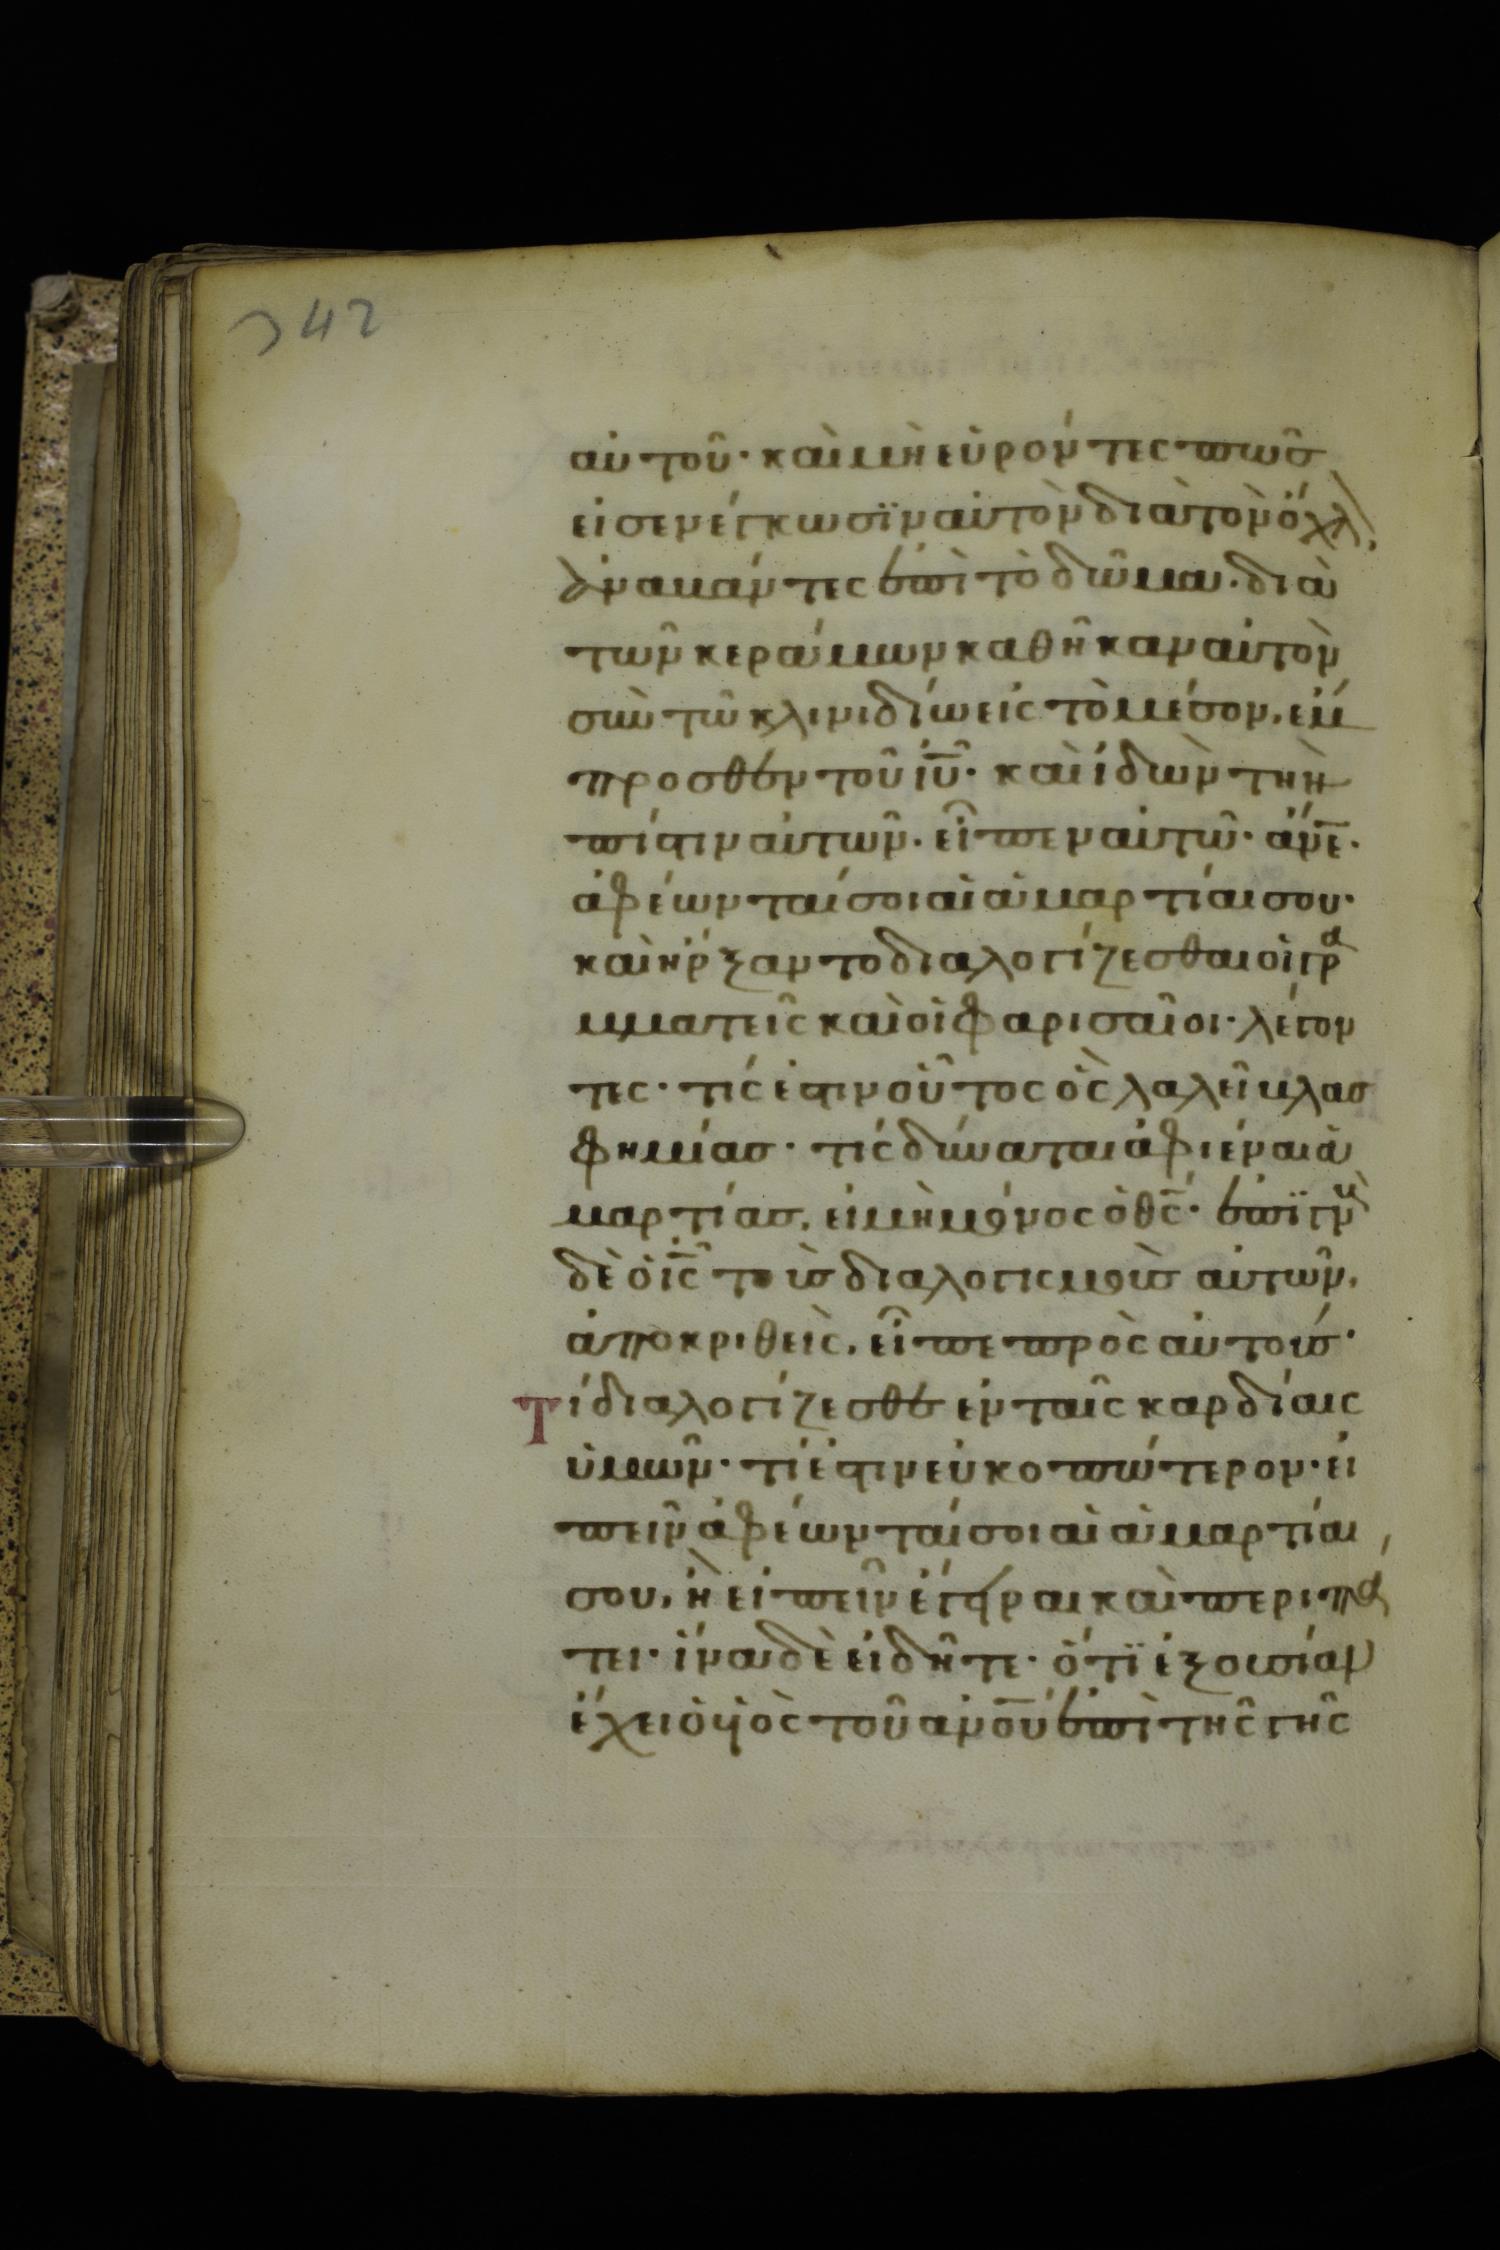 342
αὐτοῦ· καὶ μὴ εὑρόντες πῶς
εἰσενέγκωσϊν αὐτὸν διὰ τὸν ὄχλ
ἀναβάντες ἐπὶ τὸ δῶμα· διὰ
τῶν κεράμων καθῆκαν αὐτὸν
σὺν τῶ κλινιδίω εἰς τὸ μέσον, ἔμ
προσθεν τοῦ ἰῦ· καὶ ἰδὼν τὴν
πίστιν αὐτῶν· εἶπεν αὐτῶ· ἄνε·
ἀφέωνταί σοι αἱ ἁμαρτίαι σου·
καὶ ἤρξαντο διαλογίζεσθαι οἱ γρα
μματεῖς καὶ οἱ φαρισαῖοι· λέγον
τες· τίς ἐστιν οὗτος ὃς λαλεῖ βλασ
φημίας· τίς δύναται ἀφιέναι ἁ
μαρτίας, εἰ μὴ μόνος ὁ θς· ἐπϊγν
δὲ ὁ ἰς τοὺς διαλογισμοὺς αὐτῶν,
ἀποκριθεὶς, εἶπε πρὸς αὐτούς·
Τί διαλογίζεσθε ἐν ταῖς καρδίαις
ὑμῶν· τί ἐστιν εὐκοπώτερον· εἰ
πεῖν ἀφέωνταί σοι αἱ ἁμαρτίαι
σου, ἢ εἰπεῖν ἔγειραι καὶ περιπά
τει· ἵνα δὲ εἰδῆτε· ὅτϊ ἐξουσίαν
ἔχει ὁ υἱὸς τοῦ ἀνου ἐπὶ τῆς γῆς